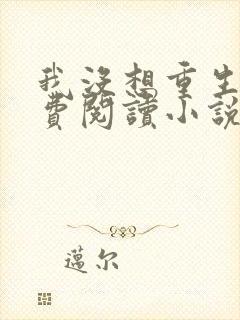 我沒想重生
費閱讀小說
邁尔